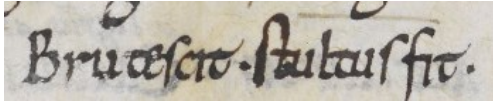 Brutescit · stultus fit ·